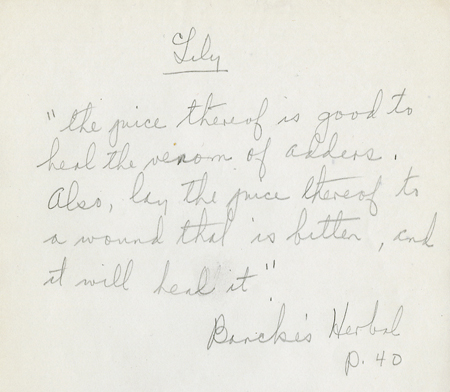 Lily
"the juice thereof is good to
heal the venom of adders.
Also, lay the juice thereof to
a wound that is bitten, and
it will heal it".
Bancke's Herbal
p. 40